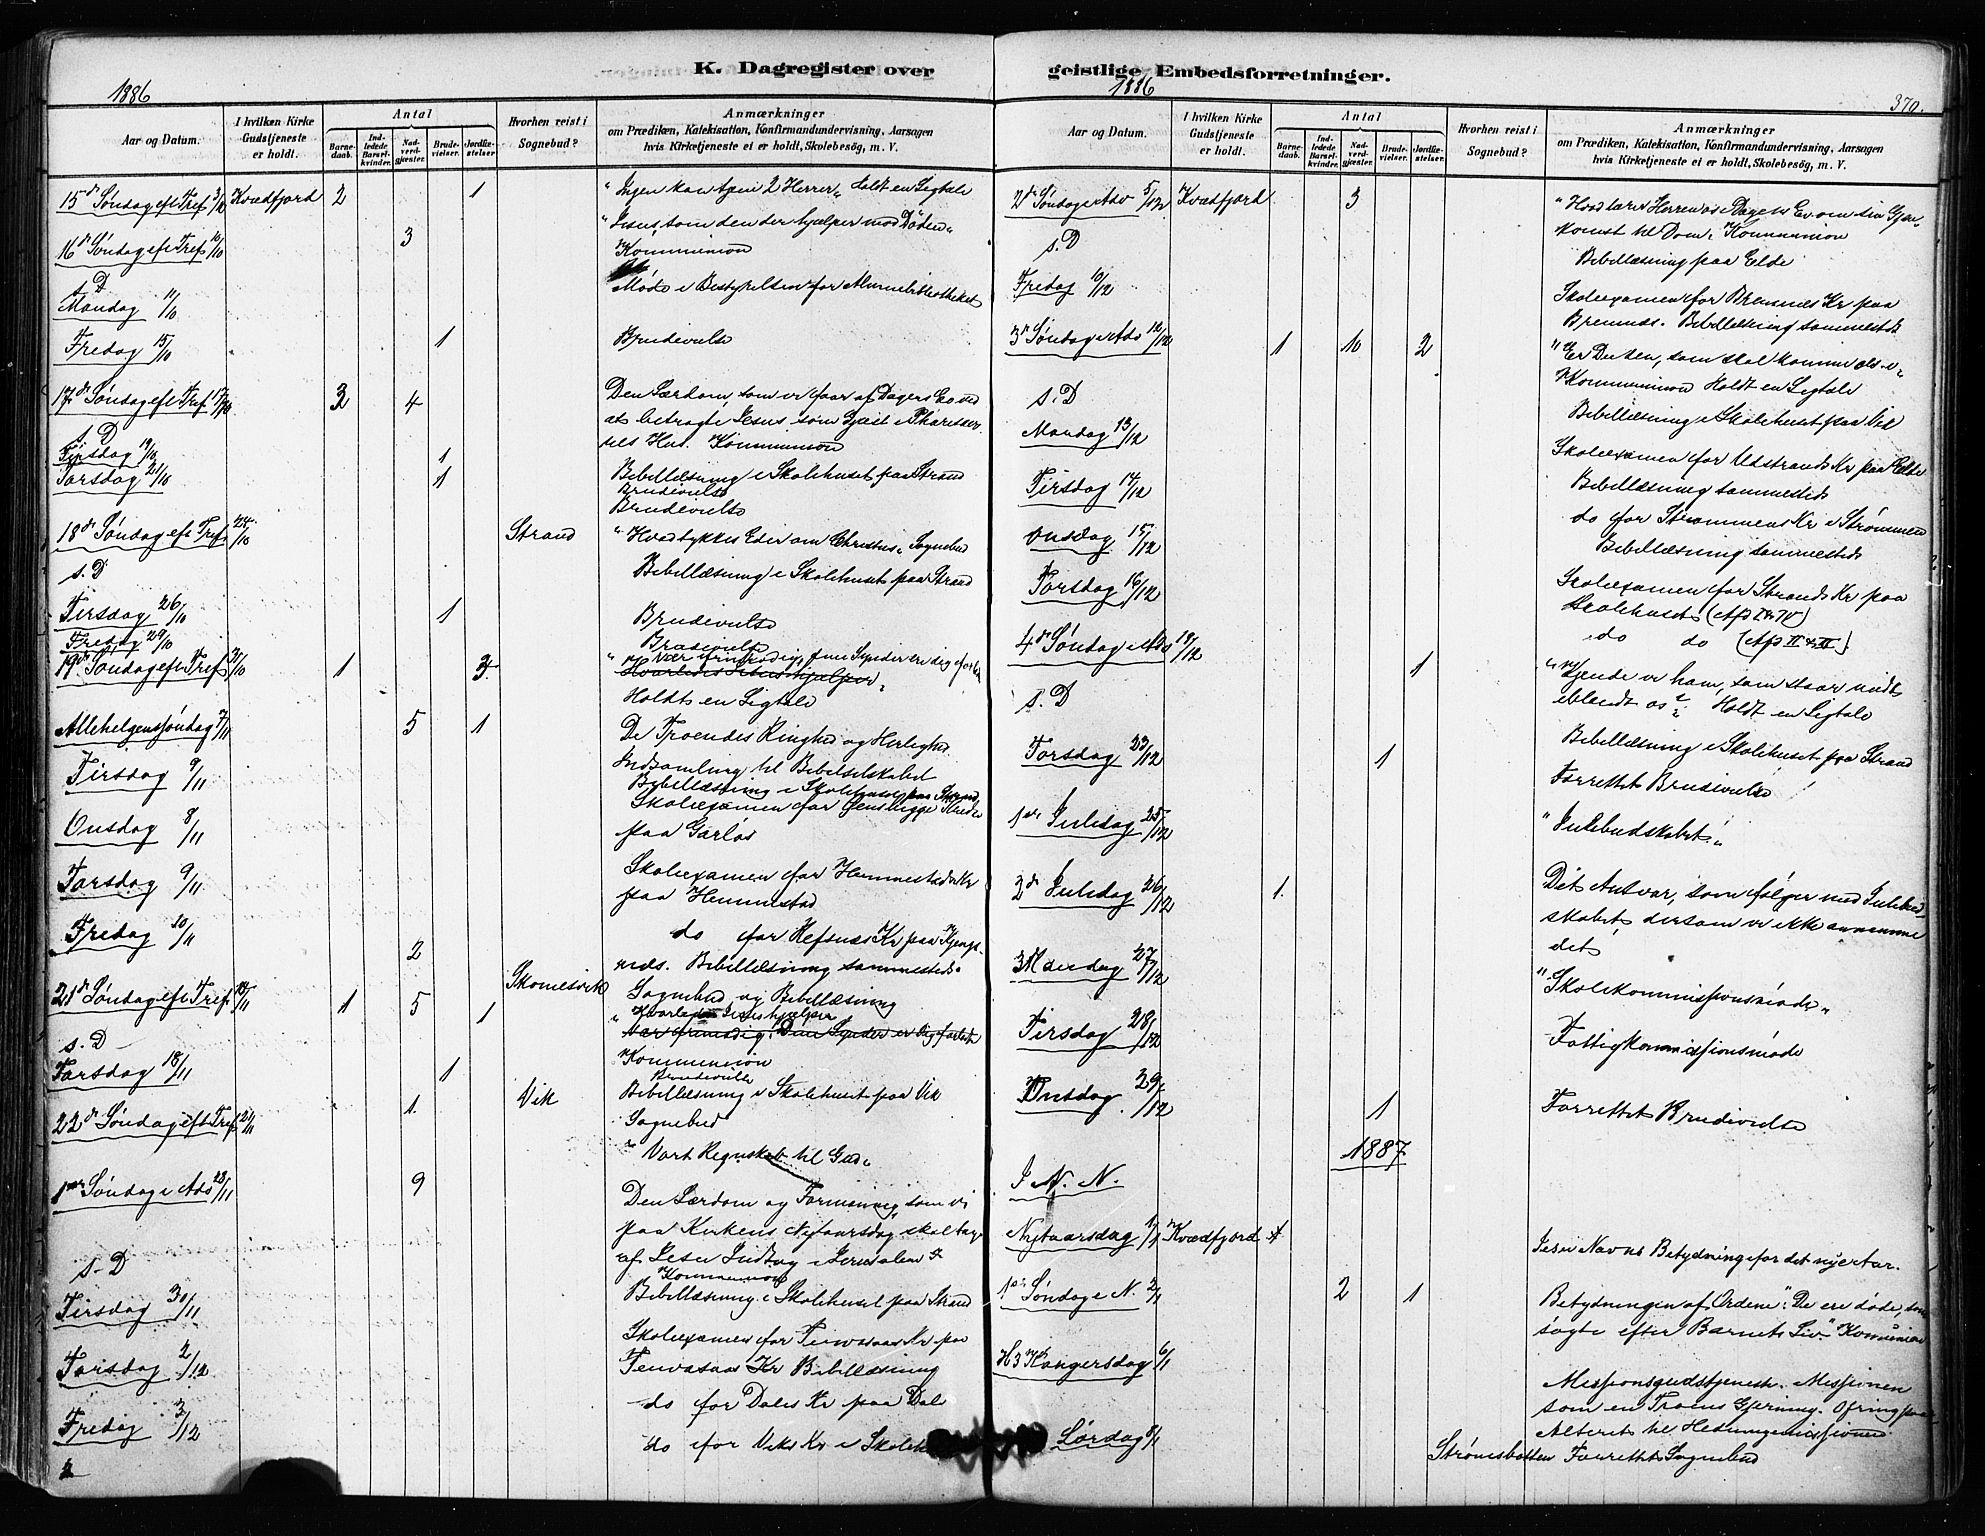 K. Dagregister over
1886
Aar og Datum.
I hvilken Kirke Gudstjeneste er holdt.
Antal
Barnedaab.
Indledede Barselkvinder.
Nadverdgjester.
Brudevielser.
Jordfæstelser.
Hvorhen reist i Sognebud?
Anmærkninger
om Prædiken, Katekisation, Konfirmandundervisning, Aarsagen
hvis Kirketjeneste ei er holdt, Skolebesög, m. V.
15de Søndag eft Tref 3/10 Kvædfjord 2 1 "Ingen kan tjene 2 Herrer" Holdt en Ligtale
16de Søndag eft Tref 10/10 3 "Jesus, som den der hjælper mod Døden"
Kommunion
s. D
Mandag 11/10 Møde i Bestyrelsen for Almuebibliotheket
Fredag 15/10 1 Brudevielse
17de Søndag eft Tref 17/10 3 4 Den Lærdom, som vi faar af Dagens Ev ved
at betragte Jesus som Gjest i Farisæer
nes Hus. Kommunion
s. D
Tirsdag 19/10 1
Torsdag 21/10 1 Bibellæsning i Skolehuset paa Strand
Brudevielse
Brudevielse
18de Søndag eft Tref 24/10 Strand "Hvad tykkes Eder om Christus" Sognebud
s. D Bibellæsning i Skolehuset paa Strand
Tirsdag 26/10 1 Brudevielse
Fredag 29/10 Brudevielse
19de Søndag eft Tref 31/10 1 "Vær frimodig, dine Synder er dig forladt
Hvorledes Jesus hjælper"
Holdt en Ligtale
Allehelgenssøndag 7/11 5 1 De Troendes Ringhed og Herlighed
Indsamling til Bibelselskabet
Tirsdag 9/11 Bibellæsning i Skolehuset paa Strand
Skoleexamen for
Onsdag 8/11 paa
Torsdag 9/11 Skoleexamen for Hemmestad Kr
paa Hemmestad
Fredag 10/11 2 do for Refsnæs Kr paa
næs. Bibellæsning sammesteds
21de Søndag eft Tref 14/11 1 5 1 Sognebud og Bibellæsning
"Hvorledes Jesus hjælper
Vær frimodig! Dine Synder er dig forladt
s. D Kommunion
Torsdag 18/11 1 Brudevielse
Vik Bibellæsning i Skolehuset paa Vik
22de Søndag eft Tref 21/11 1. Sognebud
"Vort Regnskab til Gud"
1ste Søndag i Adv 28/11 9 Den Lærdom og Formaning, som vi
paa Kirkens Nytaarsdag skal tage
af Jesu Indtog i Jerusalem
s. D Kommunion
Tirsdag 30/11 Bibellæsning i Skolehuset paa Strand
Skoleexamen for Kr paa
Torsdag 2/12 Kr Bibellæsning
do for Dales Kr paa Dale
Fredag 3/12 do for Viks Kr i
geistlige Embedsforretninger.
1886
370.
Aar og Datum.
I hvilken Kirke Gudstjeneste er holdt.
Antal
Barnedaab.
Indledede Barselkvinder.
Nadverdgjester.
Brudevielser.
Jordfæstelser.
Hvorhen reist i Sognebud?
Anmærkninger
om Prædiken, Katekisation, Konfirmandundervisning, Aarsagen
hvis Kirketjeneste ei er holdt, Skolebesög, m. V.
2den Søndag i Adv 5/12 Kvædfjord 3 "Hvad lærer Herren os i Dagens Ev om sin Gjen-
komst til Dom" Kommunion
s. D Bibellæsning paa Elde
Fredag 10/12 Skoleexamen for Bremnes Kr paa
Bremnes. Bibellæsning sammesteds
3de Søndag i Adv 12/12 1 10 2 "Er Du den, som skal komme &c"
Kommunion Holdt en Ligtale
s. D Bibellæsning i Skolehuset paa Vik
Mandag 13/12 Skoleexamen for Udstrands Kr paa Elde
Tirsdag 14/12 Bibellæsning sammesteds
do for Strømmens Kr i Strømmen
Onsdag 15/12 Bibellæsning sammesteds
Torsdag 16/12 Skoleexamen for Strands Kr paa
Skolehuset (Afd I & IV)
do do (Afd II & III)
4de Søndag i Adv 19/12 1 "Kjende vi ham, som staar midt
iblandt os"? Holdt en Ligtale
s. D Bibellæsning i Skolehuset paa Strand
Torsdag 23/12 1 Forrettet Brudevielse
1ste Juledag 25/12 "Julebudskabet"
2de Juledag 26/12 1. Det Ansvar, som følger med Julebud-
skabet, dersom vi ikke annamme
det
Mandag 27/12 "Skolekommissionsmøde"
Tirsdag 28/12 Fattigkommissionsmøde
Onsdag 29/12 1 Forrettet Brudevielse
1887
I N. N.
Nytaarsdag 1/1 Kvædfjord Jesu Navns Betydning for det nye Aar.
1ste Søndag e N. 2/1 2 1 Betydningen af Ordene: "De ere døde, som
søgte efter Barnets Liv" Kommunion
H 3 Kongersdag 6/1 Missionsgudstjeneste. Missionen
som en Troens Gjerning. Ofring paa
Alteret til Hedningemissionen
Lørdag 8/1 Strømsbotten Forrettet Sognebud